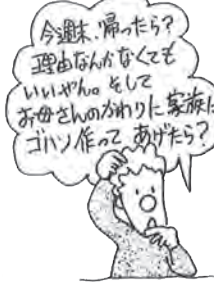 今週末、帰ったら？
理由なんかなくても
いいやん。そして
お母さんのかわりに家族に
ゴハン作って あげたら？